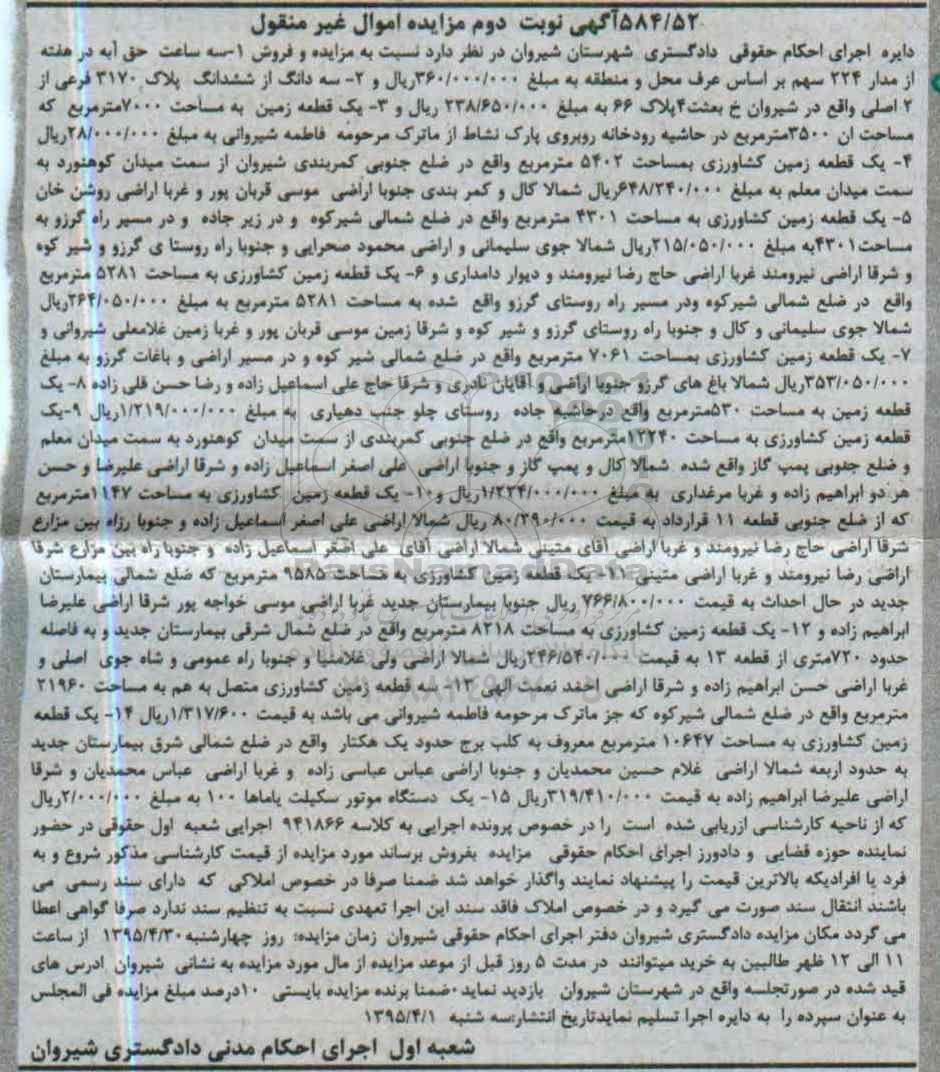 ۵۸۴/۵۲آگهی نوبت دوم مزایده اموال غیر منقول
دایره اجرای احکام حقوقی دادگستری شهرستان شیروان در نظر دارد نسبت به مزایده و فروش ۱-سه ساعت حق آبه در هفته
از مدار ۲۲۴ سهم بر اساس عرف محل و منطقه به مبلغ ۳۶۰/۰۰۰/۰۰۰ریال و ۲- سه دانگ از ششدانگ پلاک ۳۱۷۰ فرعی از
۲ اصلی واقع در شیروان خ بعثت۴پلاک ۶۶ به مبلغ ۲۳۸/۶۵۰/۰۰۰ ریال و ۳- یک قطعه زمین به مساحت ۷۰۰۰مترمربع که
مساحت ان ۳۵۰۰مترمربع در حاشیه رودخانه روبروی پارک نشاط از ماترک مرحومه فاطمه شیروانی به مبلغ ۲۸/۰۰۰/۰۰۰ریال
۴- یک قطعه زمین کشاورزی بمساحت ۵۴۰۲ مترمربع واقع در ضلع جنوبی کمربندی شیروان از سمت میدان کوهنورد به
سمت میدان معلم به مبلغ ۶۴۸/۲۴۰/۰۰۰ریال شمالا کال و کمر بندی جنوبا اراضی موسی قربان پور و غربا اراضی روشن خان
۵- یک قطعه زمین کشاورزی به مساحت ۴۳۰۱ مترمربع واقع در ضلع شمالی شیرکوه و در زیر جاده و در مسیر راه گرزو به
مساحت۴۳۰۱به مبلغ ۲۱۵/۰۵۰/۰۰۰ریال شمالا جوی سلیمانی و اراضی محمود صحرایی و جنوبا راه روستا ی گرزو و شیر کوه
و شرقا اراضی نیرومند غربا اراضی حاج رضا نیرومند و دیوار دامداری و ۶- یک قطعه زمین کشاورزی به مساحت ۵۲۸۱ مترمربع
واقع در ضلع شمالی شیرکوه ودر مسیر راه روستای گرزو واقع شده به مساحت ۵۲۸۱ مترمربع به مبلغ ۲۶۴/۰۵۰/۰۰۰ریال
شمالا جوی سلیمانی و کال و جنوبا راه روستای گرزو و شیر کوه و شرقا زمین موسی قربان پور و غربا زمین غلامعلی شیروانی و
۷- یک قطعه زمین کشاورزی بمساحت ۷۰۶۱ مترمربع واقع در ضلع شمالی شیر کوه و در مسیر اراضی و باغات گرزو به مبلغ
۳۵۳/۰۵۰/۰۰۰ریال شمالا باغ های گرزو جنوبا اراضی و آقایان نادری و شرقا حاج علی اسماعیل زاده و رضا حسن قلی زاده ۸- یک
قطعه زمین به مساحت ۵۳۰مترمربع واقع درحاشیه جاده روستای چلو جنب دهیاری به مبلغ ۱/۲۱۹/۰۰۰/۰۰۰ریال ۹-یک
قطعه زمین کشاورزی به مساحت ۱۲۲۴۰مترمربع واقع در ضلع جنوبی کمربندی از سمت میدان کوهنورد به سمت میدان معلم
و ضلع جنوبی پمپ گاز واقع شده شمالا کال و پمپ گاز و جنوبا اراضی علی اصغر اسماعیل زاده و شرقا اراضی علیرضا و حسن
هر دو ابراهیم زاده و غربا مرغداری به مبلغ ۱/۲۲۴/۰۰۰/۰۰۰ریال و۱۰- یک قطعه زمین کشاورزی به مساحت ۱۱۴۷مترمربع
که از ضلع جنوبی قطعه ۱۱ قرارداد به قیمت ۸۰/۲۹۰/۰۰۰ ریال شمالا اراضی علی اصغر اسماعیل زاده و جنوبا رزاه بین مزارع
شرقا اراضی حاج رضا نیرومند و غربا اراضی آقای متینی شمالا اراضی آقای علی اصغر اسماعیل زاده و جنوبا راه بین مزارع شرقا
اراضی رضا نیرومند و غربا اراضی متینی ۱۱- یک قطعه زمین کشاورزی به مساحت ۹۵۸۵ مترمربع که ضلع شمالی بیمارستان
جدید در حال احداث به قیمت ۷۶۶/۸۰۰/۰۰۰ ریال جنوبا بیمارستان جدید غربا اراضی موسی خواجه پور شرقا اراضی علیرضا
ابراهیم زاده و ۱۲- یک قطعه زمین کشاورزی به مساحت ۸۲۱۸ مترمربع واقع در ضلع شمال شرقی بیمارستان جدید و به فاصله
حدود ۷۲۰متری از قطعه ۱۳ به قیمت ۲۴۶/۵۴۰/۰۰۰ریال شمالا اراضی ولی غلامنیا و جنوبا راه عمومی و شاه جوی اصلی و
غربا اراضی حسن ابراهیم زاده و شرقا اراضی احمد نعمت الهی ۱۳- سه قطعه زمین کشاورزی متصل به هم به مساحت ۲۱۹۶۰
مترمربع واقع در ضلع شمالی شیرکوه که جز ماترک مرحومه فاطمه شیروانی می باشد به قیمت ۱/۳۱۷/۶۰۰ریال ۱۴- یک قطعه
زمین کشاورزی به مساحت ۱۰۶۴۷ مترمربع معروف به کلب برج حدود یک هکتار واقع در ضلع شمالی شرق بیمارستان جدید
به حدود اربعه شمالا اراضی غلام حسین محمدیان و جنوبا اراضی عباس عباسی زاده و غربا اراضی عباس محمدیان و شرقا
اراضی علیرضا ابراهیم زاده به قیمت ۳۱۹/۴۱۰/۰۰۰ریال ۱۵- یک دستگاه موتور سکیلت یاماها ۱۰۰ به مبلغ ۲/۰۰۰/۰۰۰ریال
که از ناحیه کارشناسی ازریابی شده است را در خصوص پرونده اجرایی به کلاسه ۹۴۱۸۶۶ اجرایی شعبه اول حقوقی در حضور
نماینده حوزه قضایی و دادورز اجرای احکام حقوقی مزایده بفروش برساند مورد مزایده از قیمت کارشناسی مذکور شروع و به
فرد یا افرادیکه بالاترین قیمت را پیشنهاد نمایند واگذار خواهد شد ضمنا صرفا در خصوص املاکی که دارای سند رسمی می
باشند انتقال سند صورت می گیرد و در خصوص املاک فاقد سند این اجرا تعهدی نسبت به تنظیم سند ندارد صرفا گواهی اعطا
می گردد مکان مزایده دادگستری شیروان دفتر اجرای احکام حقوقی شیروان زمان مزایده: روز چهارشنبه۱۳۹۵/۴/۳۰ از ساعت
۱۱ الی ۱۲ ظهر طالبین به خرید میتوانند در مدت ۵ روز قبل از موعد مزایده از مال مورد مزایده به نشانی شیروان ادرس های
قید شده در صورتجلسه واقع در شهرستان شیروان بازدید نماید.ضمنا برنده مزایده بایستی ۱۰درصد مبلغ مزایده فی المجلس
به عنوان سپرده را به دایره اجرا تسلیم نمایدتاریخ انتشار:سه شنبه ۱۳۹۵/۴/۱
شعبه اول اجرای احکام مدنی دادگستری شیروان